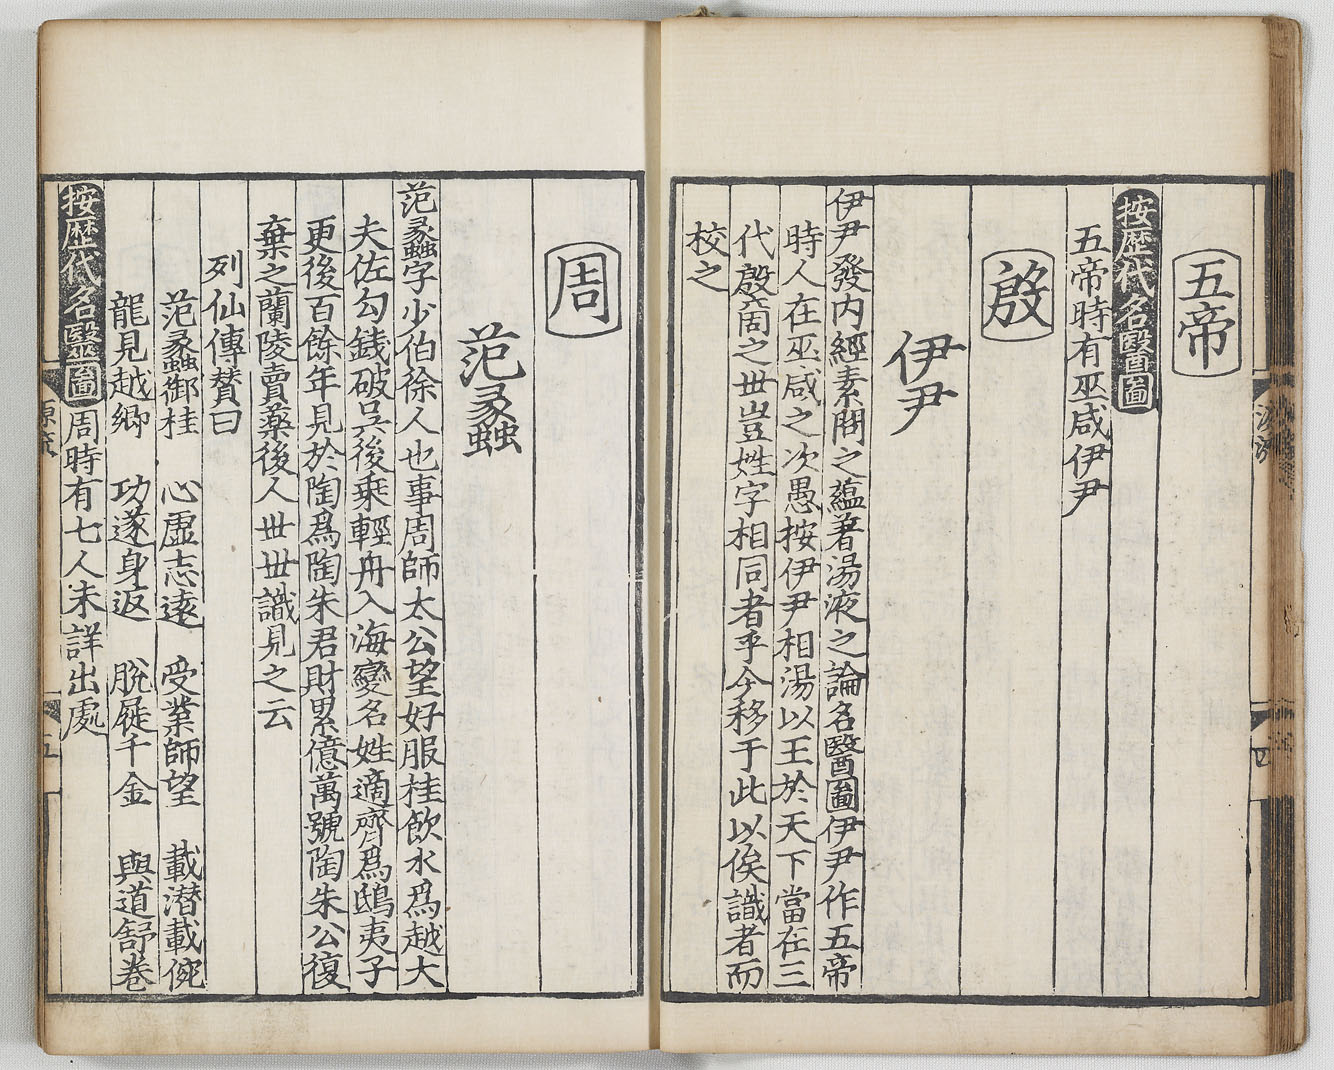 五帝
按歴代名醫啚
五帝時有巫咸伊尹
殷
伊尹
伊尹發内經素問之蘊著湯液之論名醫啚伊尹作五帝
時人在巫咸之次愚按伊尹相湯以王於天下當在三
代殷商之世豈姓字相同者乎今移于此以俟識者而
校之
周
范蠡
范蠡字少伯徐人也事周師太公望好服桂飲水爲越大
夫佐勾銭破吴後乗輕舟入海變名姓適齊爲鴟夷子
更後百餘年見於陶爲陶朱君財累億萬號陶朱公復
棄之蘭陵賣藥後人丗丗識見之云
列仙傳賛曰
范蠡御桂 心虛志遠 受業師望 載潜載俛
龍見越鄉 功遂身返 脫屣千金 與道舒卷
按歴代名醫啚周時有七人未詳出處
五